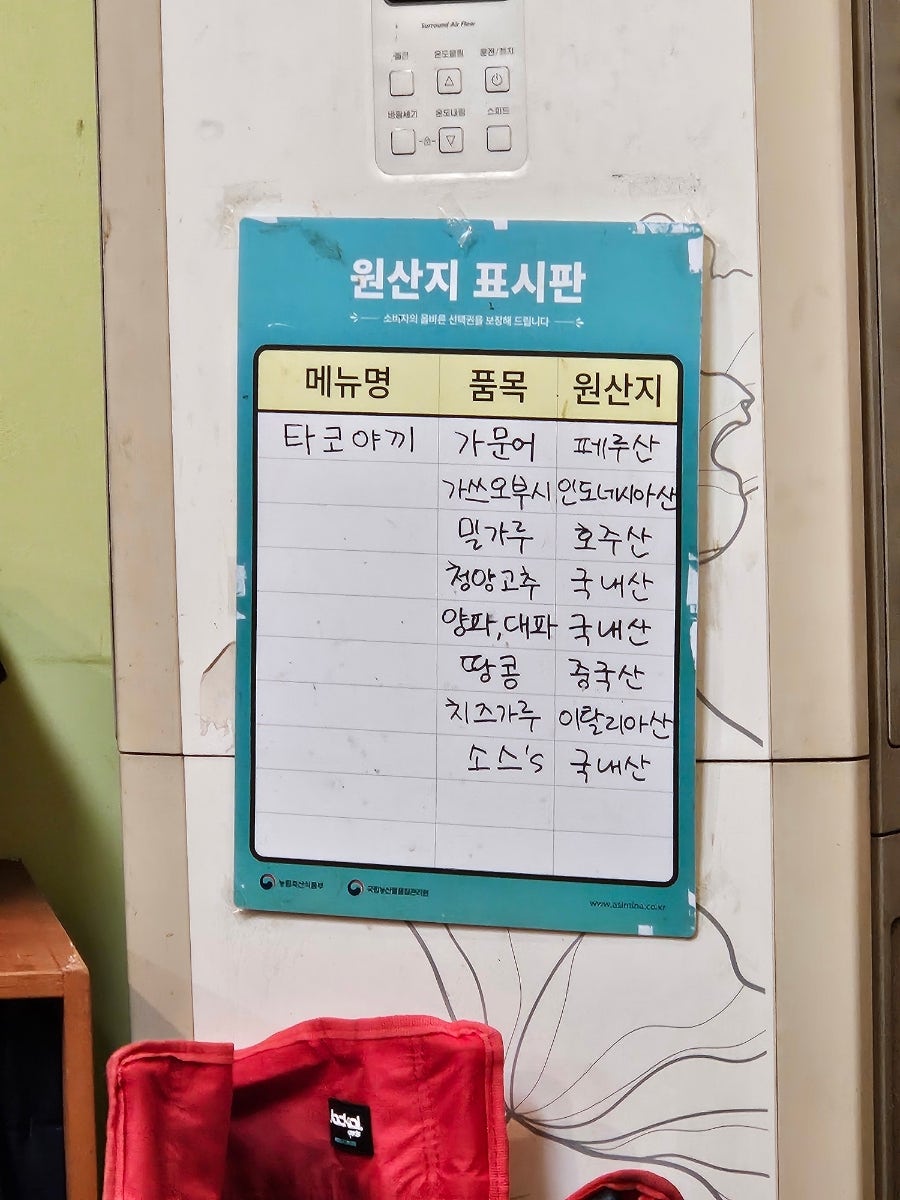 Surround Air Flow
온도올림
운전/정지
바람세기
온도내림
스피드
원산지 표시판
소비자의 올바른 선택권을 보장해 드립니다
메뉴명 품목 원산지
타코야끼 가문어 페루산
가쓰오부시 인도네시아산
밀가루 호주산
청양고추 국내산
양파,대파 국내산
땅콩 중국산
치즈가루 이탈리아산
소스's 국내산
농림축산식품부
국립농산물품질관리원